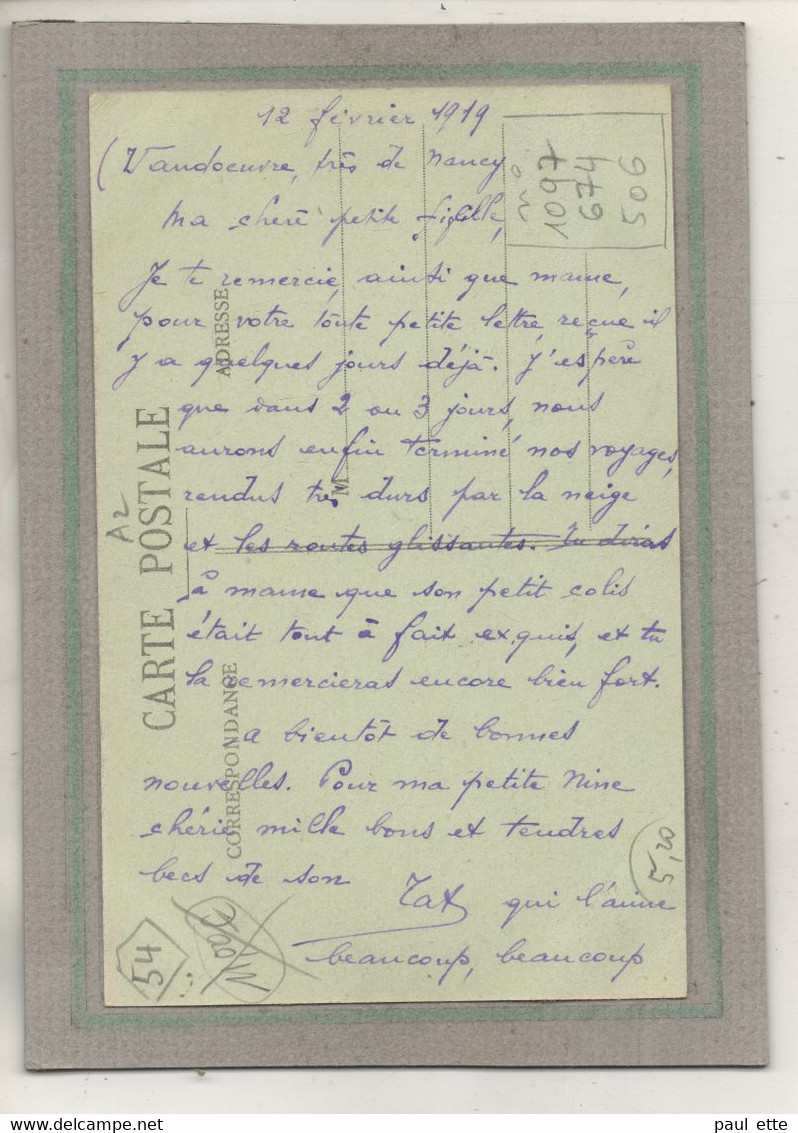 12 février 1919
(Vandoeuvre, près de Nancy
Ma chère petite fifille,
Je te remercie, ainsi que mame,
pour votre toute petite lettre, reçue il
y a quelques jours déjà. J'espère
que dans 2 ou 3 jours, nous
aurons enfin terminé nos voyages,
rendus très durs par la neige
et les routes glissantes. Tu diras
à mame que son petit colis
était tout à fait exquis, et tu
la remercieras encore bien fort.
A bientôt de bonnes
nouvelles. Pour ma petite Nine
chérie, mille bons et tendres
becs de son Tat qui l'aime
beaucoup, beaucoup
no
1097
674
506
CARTE POSTALE
ADRESSE
CORRESPONDANCE
M
A2
54
5,20
paul ette